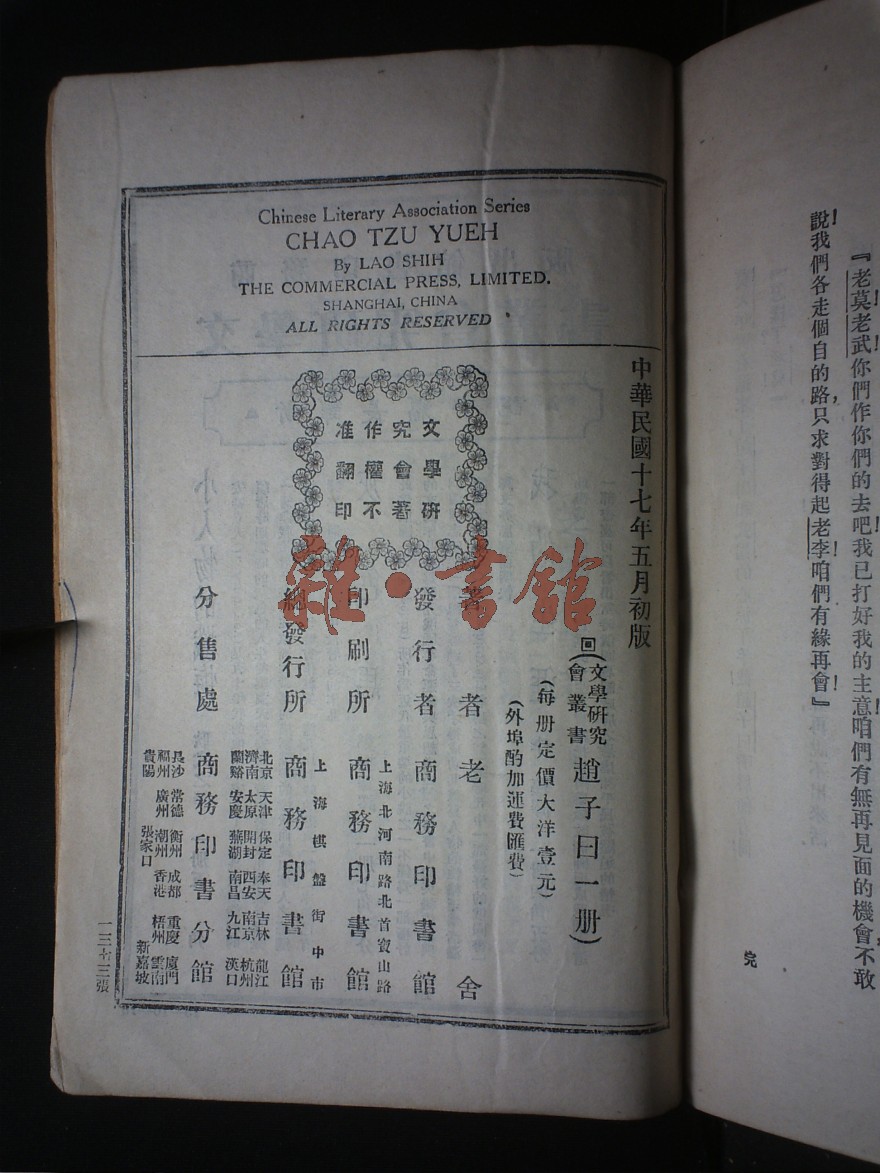 『老莫老武!你們作你們的去吧!我已打好我的主意!咱們有無再見面的機會,不敢
說!我們各走個自的路,只求對得起老李!咱們有緣再會!』
完
Chinese Literary Association Series
CHAO TZU YUEH
By LAO SHIH
THE COMMERCIAL PRESS, LIMITED.
SHANGHAI, CHINA
ALL RIGHTS RESERVED
中華民國十七年五月初版
回(文學研究會叢書趙子曰一册)
(每册定價大洋壹元)
(外埠酌加運費匯費)
文學研
究會著
作權不
准翻印
著者 老舍
發行者 商務印書館
上海北河南路北首寶山路
印刷所 商務印書館
上海棋盤街中市
總發行所 商務印書館
北京 天津 保定 奉天 吉林 龍江
濟南 太原 開封 西安 南京 杭州
蘭谿 安慶 蕪湖 南昌 九江 漢口
分售處 商務印書分館
長沙 常德 衡州 成都 重慶 廈門
福州 廣州 潮州 香港 梧州 雲南
貴陽 張家口 新嘉坡
一三七三張
雜·書館